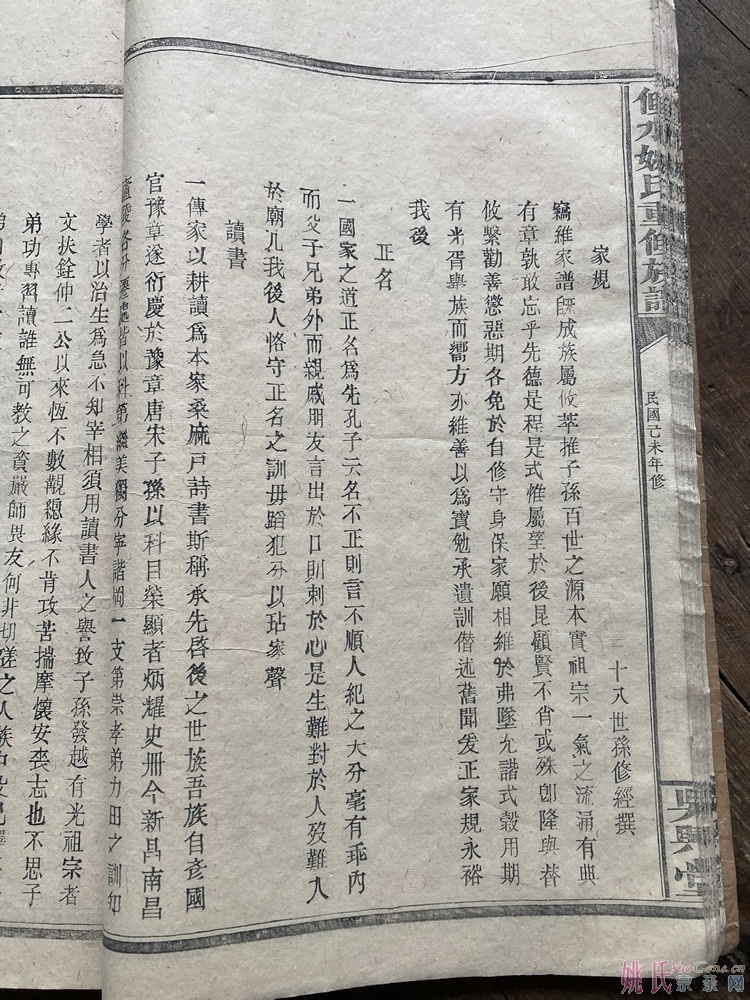 修水姚氏重修族譜
民國己未年修
吳興堂
家規
三十八世孫修經撰
竊維家譜既成族屬攸萃推子孫百世之源本實祖宗一氣之流涌有典
有章孰敢忘乎先德是程是式惟屬望於後昆顧賢不肖或殊卽隆與替
攸繫勸善懲惡期各免於自修守身保家願相維於弗墜允諧式穀用期
有光胥舉族而嚮方亦維善以爲寶勉承遺訓僭述舊聞爰正家規永裕
我後
正名
一國家之道正名爲先孔子云名不正則言不順人紀之大分毫有乖內
而父子兄弟外而親戚朋友言出於口則刺於心是生難對於人歿難入
於廟凡我後人恪守正名之訓毋蹈犯分以玷家聲
讀書
一傳家以耕讀爲本家桑麻戶詩書斯稱承先啓後之世族吾族自彥國
官豫章遂衍慶於豫章唐宋子孫以科目榮顯者炳耀史冊今新昌南昌
廬陵各分 皆以科第繼美獨分寧諧岡一支第崇孝弟力田之訓如
學者以治生爲急不知宰相須用讀書人之譽致子孫發越有光祖宗者
文扶銓仲二公以來恆不數觀總緣不肯攻苦揣摩懷安喪志也不思子
弟功專習讀誰無可教之資嚴師畏友何非切磋之人族
姚氏宗亲网
YaoGens.cn